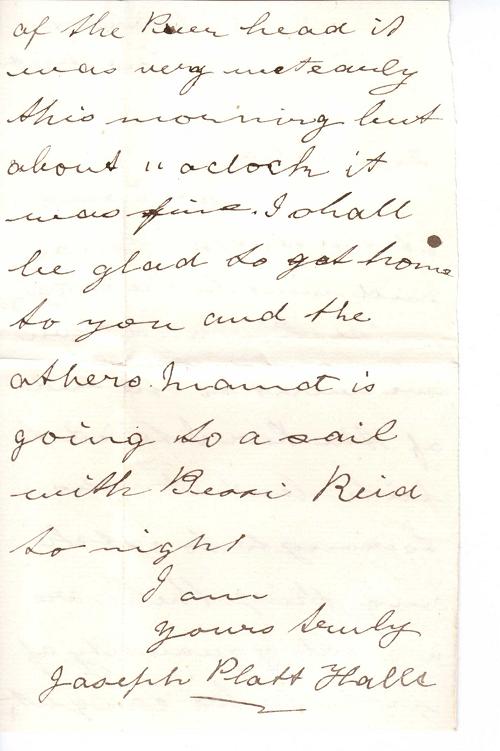 of the Puer head it
was very wet early
this morning but
about 11 oclock it
was fine. I shall
be glad to get home
to you and the
others. Mamat is
going to a sail
with Bessi Reid
to night
I am
yours truly
Joseph Platt Halls